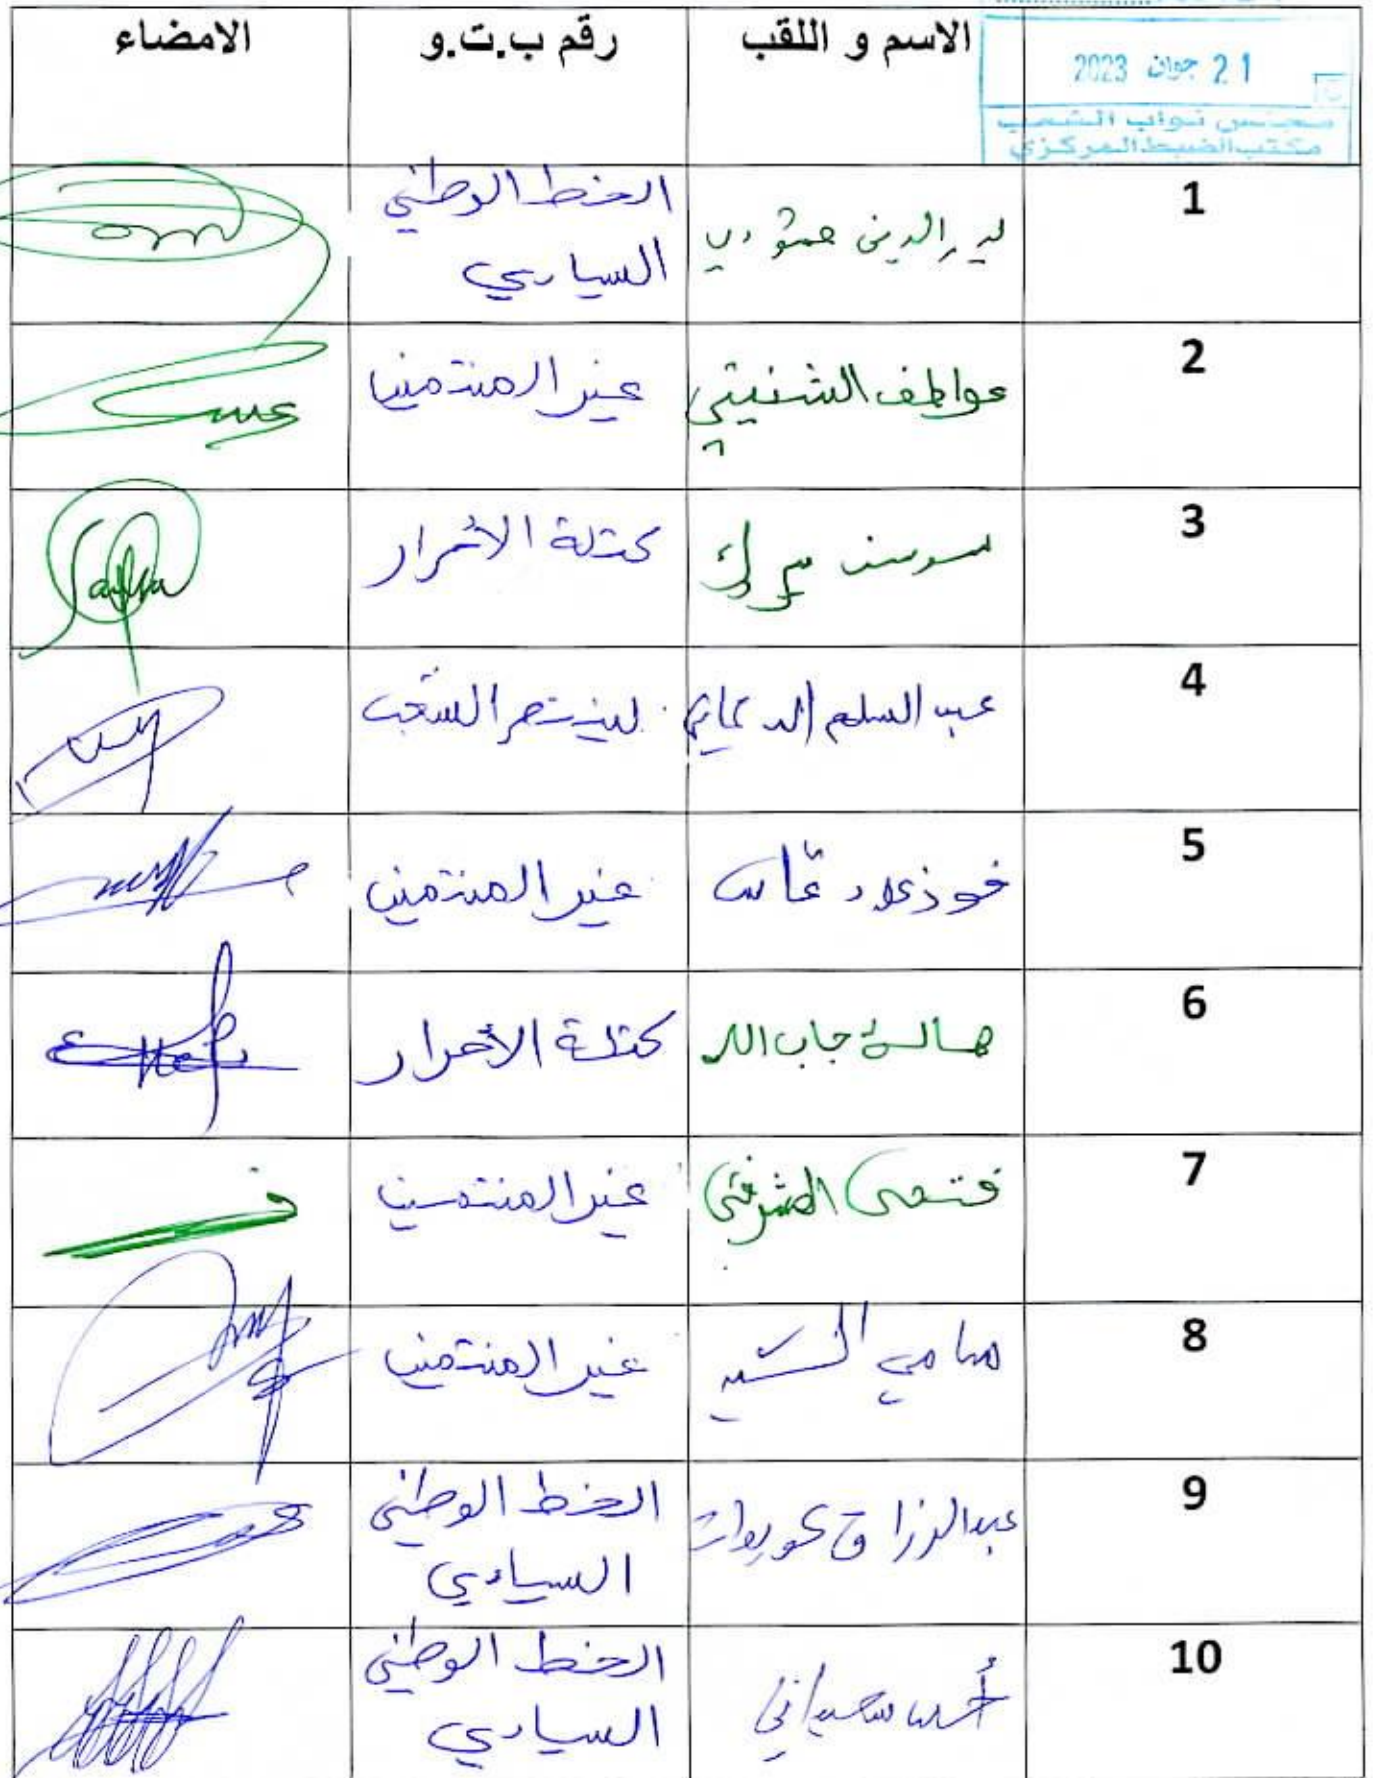 الاسم و اللقب
رقم ب.ت.و
الامضاء
21 جوان 2023
مجلس نواب الشعب
مكتب الضبط المركزي
1
الخط الوطني
السيادي
2
عواطف الشنيتي
غير المنتمين
3
سوسن مبروك
كتلة الأحرار
4
عبد السلام الدحماني
لينتصر الشعب
5
فوزي دعاس
غير المنتمين
6
هالة جاب الله
كتلة الأحرار
7
فتحي المشرقي
غير المنتمين
8
سامي السيد
غير المنتمين
9
عبد الرزاق عويدات
الخط الوطني
السيادي
10
أحمد سعيداني
الخط الوطني
السيادي